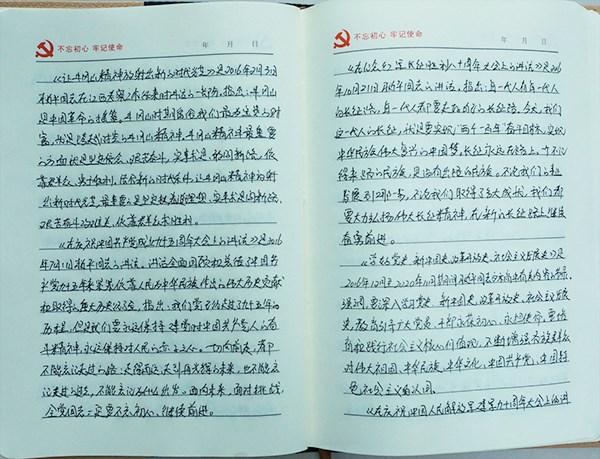 不忘初心 牢记使命
年 月 日
《让井冈山精神放射出新的时代光芒》是2016年2月3日
习近平同志在江西考察工作结束时讲话的一部分。指出:井冈山
是中国革命的摇篮。井冈山时期留给我们最为宝贵的财
富,就是跨越时空的井冈山精神。井冈山精神最重要
的方面就是坚定信念、艰苦奋斗,实事求是、敢闯新路,依
靠群众、勇于胜利。结合新的时代条件,让井冈山精神放射
出新的时代光芒,最重要的是坚定执着追理想、实事求是闯新路、
艰苦奋斗攻难关、依靠群众求胜利。
《在庆祝中国共产党成立九十五周年大会上的讲话》是2016
年7月1日习近平同志的讲话。讲话全面回顾
党九十五年来
权取得的
历程,但是我们要永远保持建党时中国共产党人的奋
斗精神,永远保持对人民的赤子之心。一切向前走,都不
不能忘记走过的路;走得再远、走到再光辉的未来,也不能忘
记走过的过去,不能忘记为什么出发。面向未来,面对挑战,
全党同志一定要不忘初心、继续前进。
不忘初心 牢记使命
年 月 日
《在纪念红军长征胜利八十周年大会上的讲话》是2016
年10月21日习近平同志的讲话。指出:每一代人有每一代人
的长征路,每一代人都要走好自己的长征路。今天,我们
这一代人的长征,就是要实现“两个一百年”奋斗目标、实现
中华民族伟大复兴的中国梦。长征永远在路上。
不论我们的事业
发展到哪一步,不论我们取得了多大成就,我们都
要大力弘扬伟大长征精神,在新的长征路上继续
奋勇前进。
《学好党史、新中国史、改革开放史、社会主义发展史》是
2016年12月至2020年10月期间习近平同志
强调,要深入学习党史、新中国史、改革开放史、社会主义发展
史,教育引导广大党员、干部
自觉践行社会主义核心价值观,不断增强各族群众
对伟大祖国、中华民族、中华文化、中国共产党、中国特
色社会主义的认同。
《在庆祝中国人民解放军建军九十周年大会上的讲